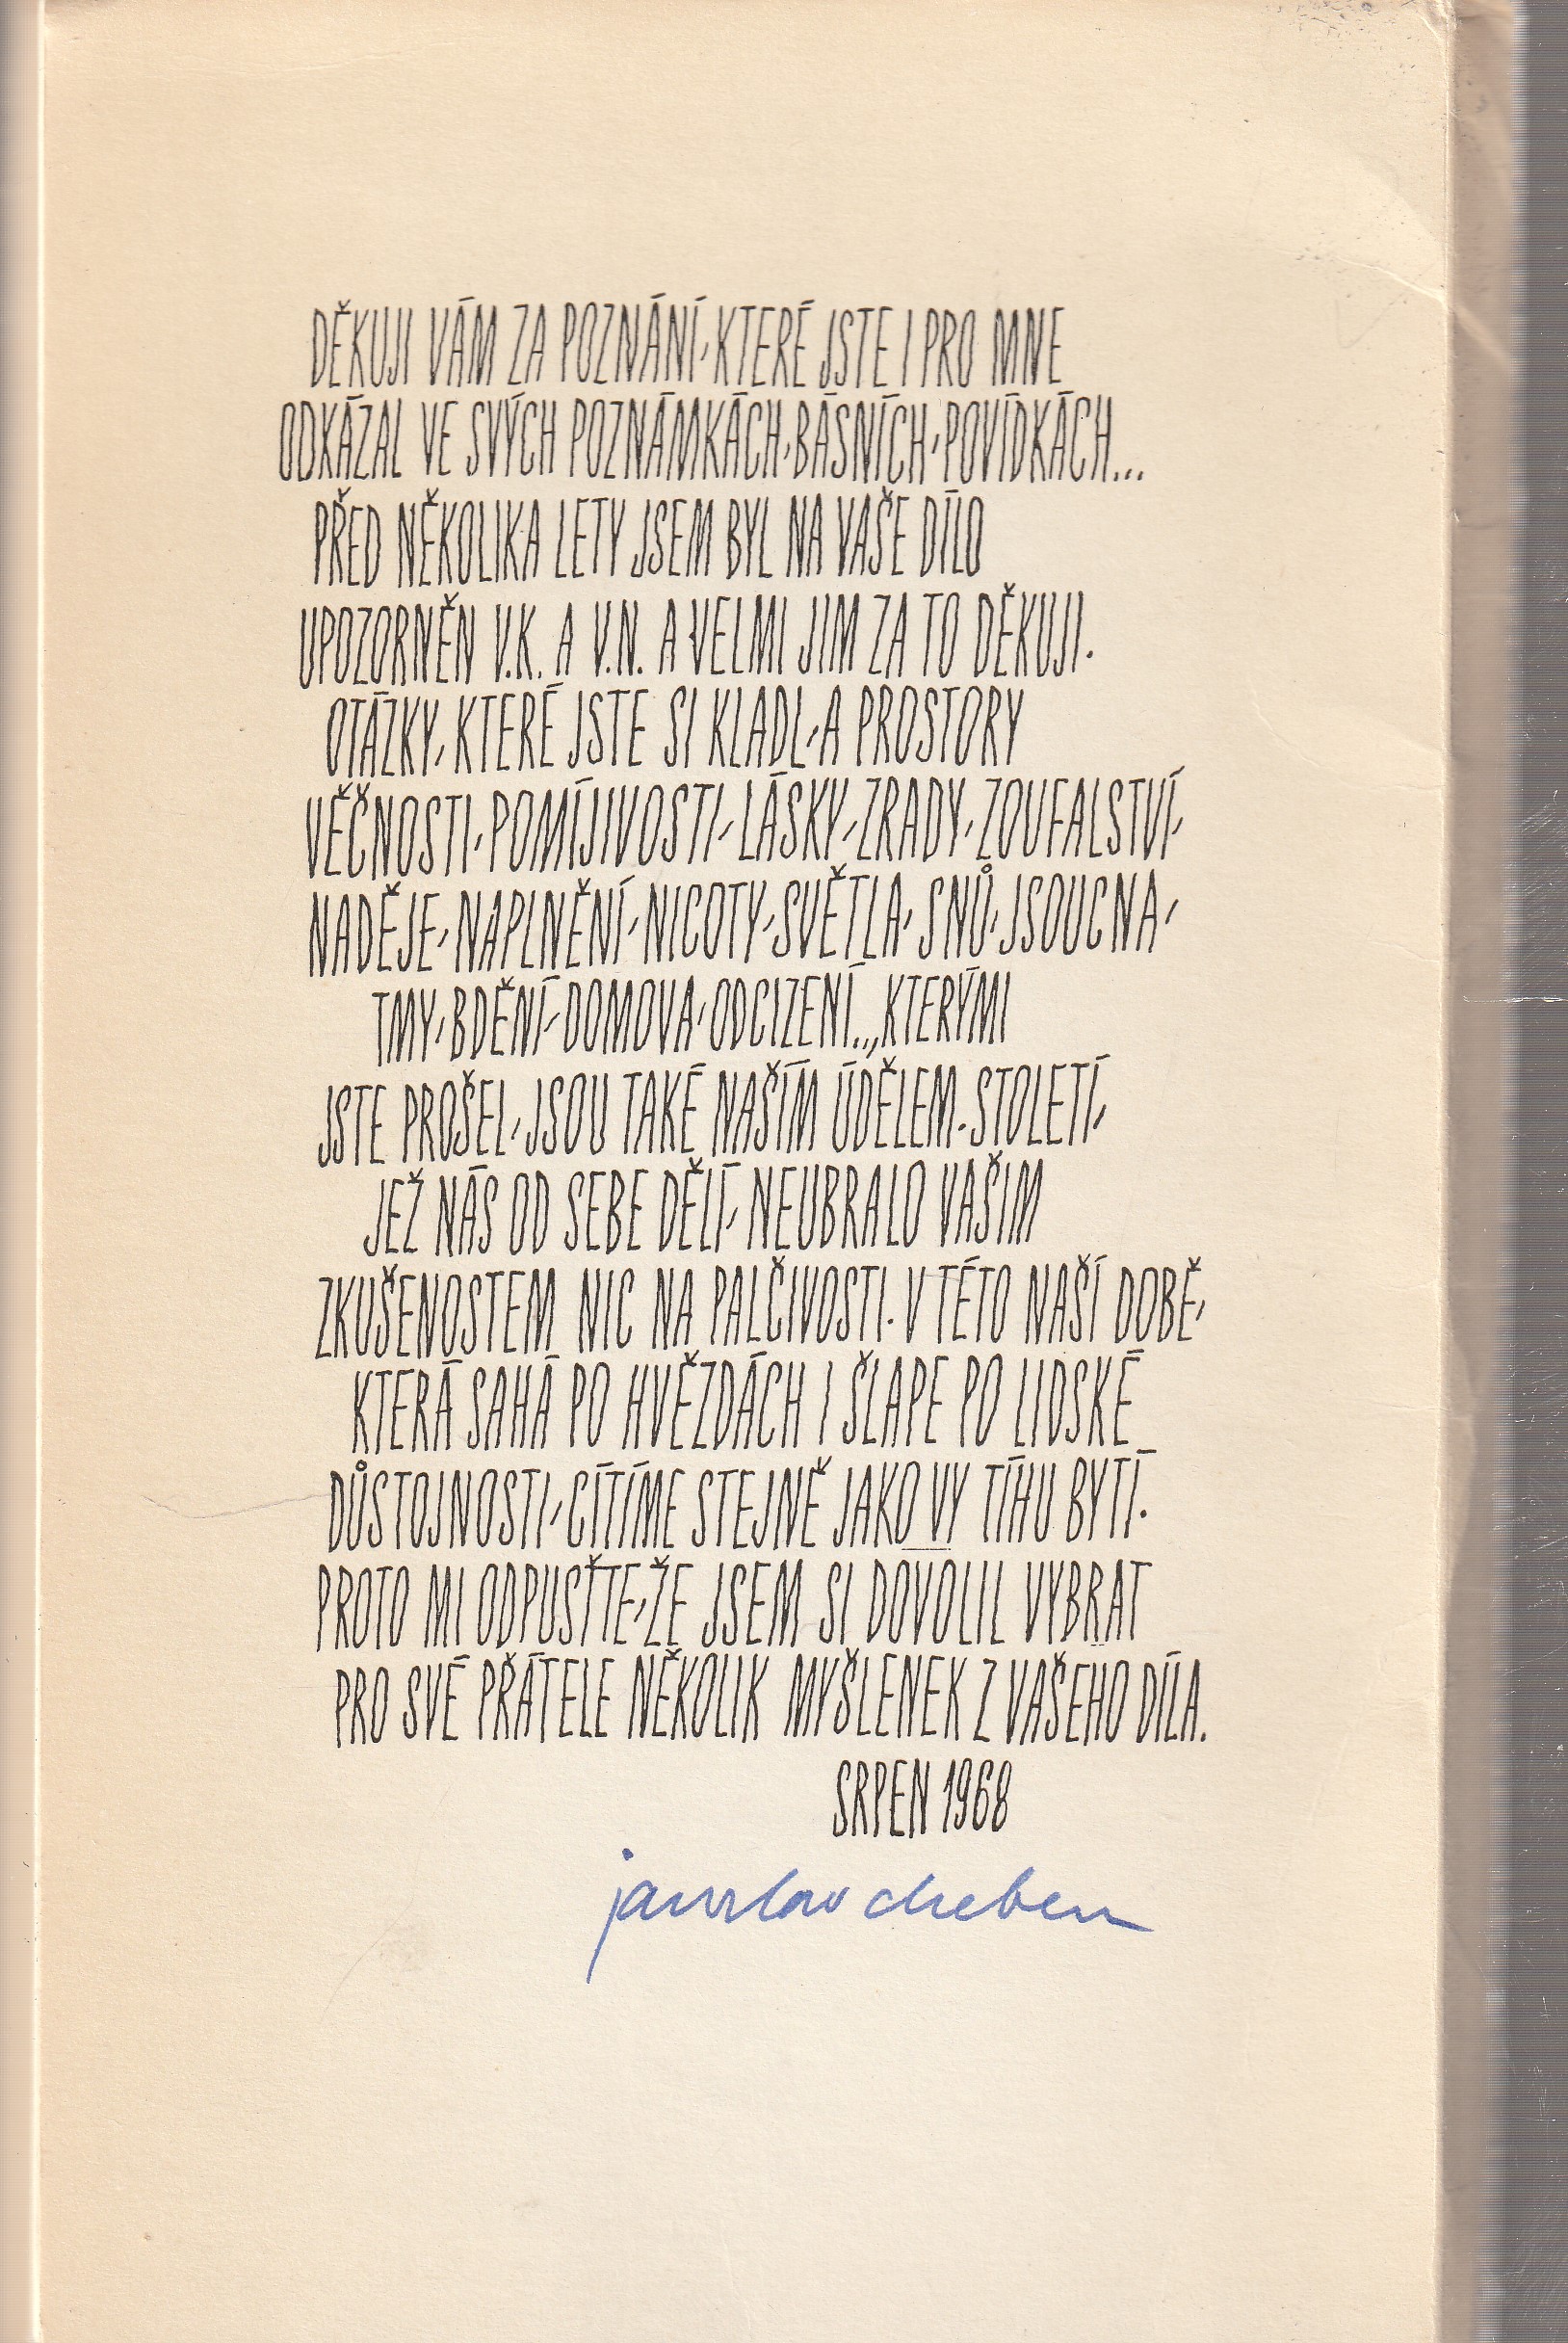 DĚKUJI VÁM ZA POZNÁNÍ, KTERÉ JSTE I PRO MNE
ODKÁZAL VE SVÝCH POZNÁMKÁCH, BÁSNÍCH, POVÍDKÁCH...
PŘED NĚKOLIKA LETY JSEM BYL NA VAŠE DÍLO
UPOZORNĚN V.K. A V.N. A VELMI JIM ZA TO DĚKUJI.
OTÁZKY, KTERÉ JSTE SI KLADL, A PROSTORY
VĚČNOSTI, POMÍJIVOSTI, LÁSKY, ZRADY, ZOUFALSTVÍ,
NADĚJE, NAPLNĚNÍ, NICOTY, SVĚTLA, SNŮ, JSOUCNA,
TMY, BDĚNÍ, DOMOVA, ODCIZENÍ..., KTERÝMI
JSTE PROŠEL, JSOU TAKÉ NAŠÍM ÚDĚLEM. STOLETÍ,
JEŽ NÁS OD SEBE DĚLÍ, NEUBRALO VAŠIM
ZKUŠENOSTEM NIC NA PALČIVOSTI. V TÉTO NAŠÍ DOBĚ,
KTERÁ SAHÁ PO HVĚZDÁCH I ŠLAPE PO LIDSKÉ
DŮSTOJNOSTI, CÍTÍME STEJNĚ JAKO VY TÍHU BYTÍ.
PROTO MI ODPUSŤTE, ŽE JSEM SI DOVOLIL VYBRAT
PRO SVÉ PŘÁTELE NĚKOLIK MYŠLENEK Z VAŠEHO DÍLA.
SRPEN 1968
jaroslav cheben